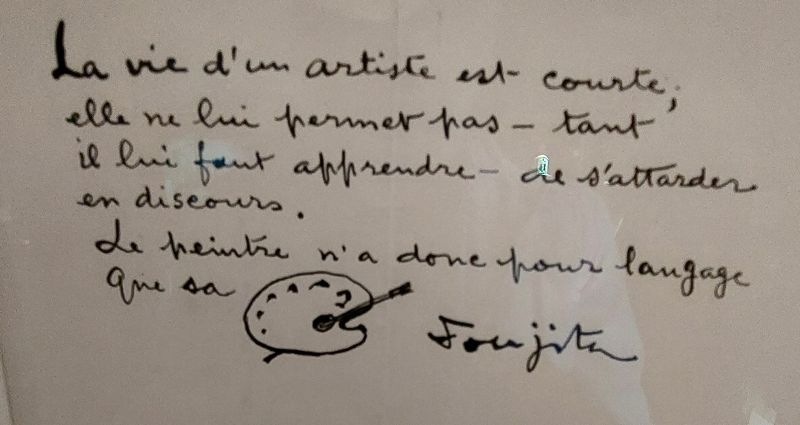 La vie d'un artiste est courte;
elle ne lui permet pas – tant
il lui faut apprendre – de s'attarder
en discours.
Le peintre n'a donc pour langage
que sa
Foujita